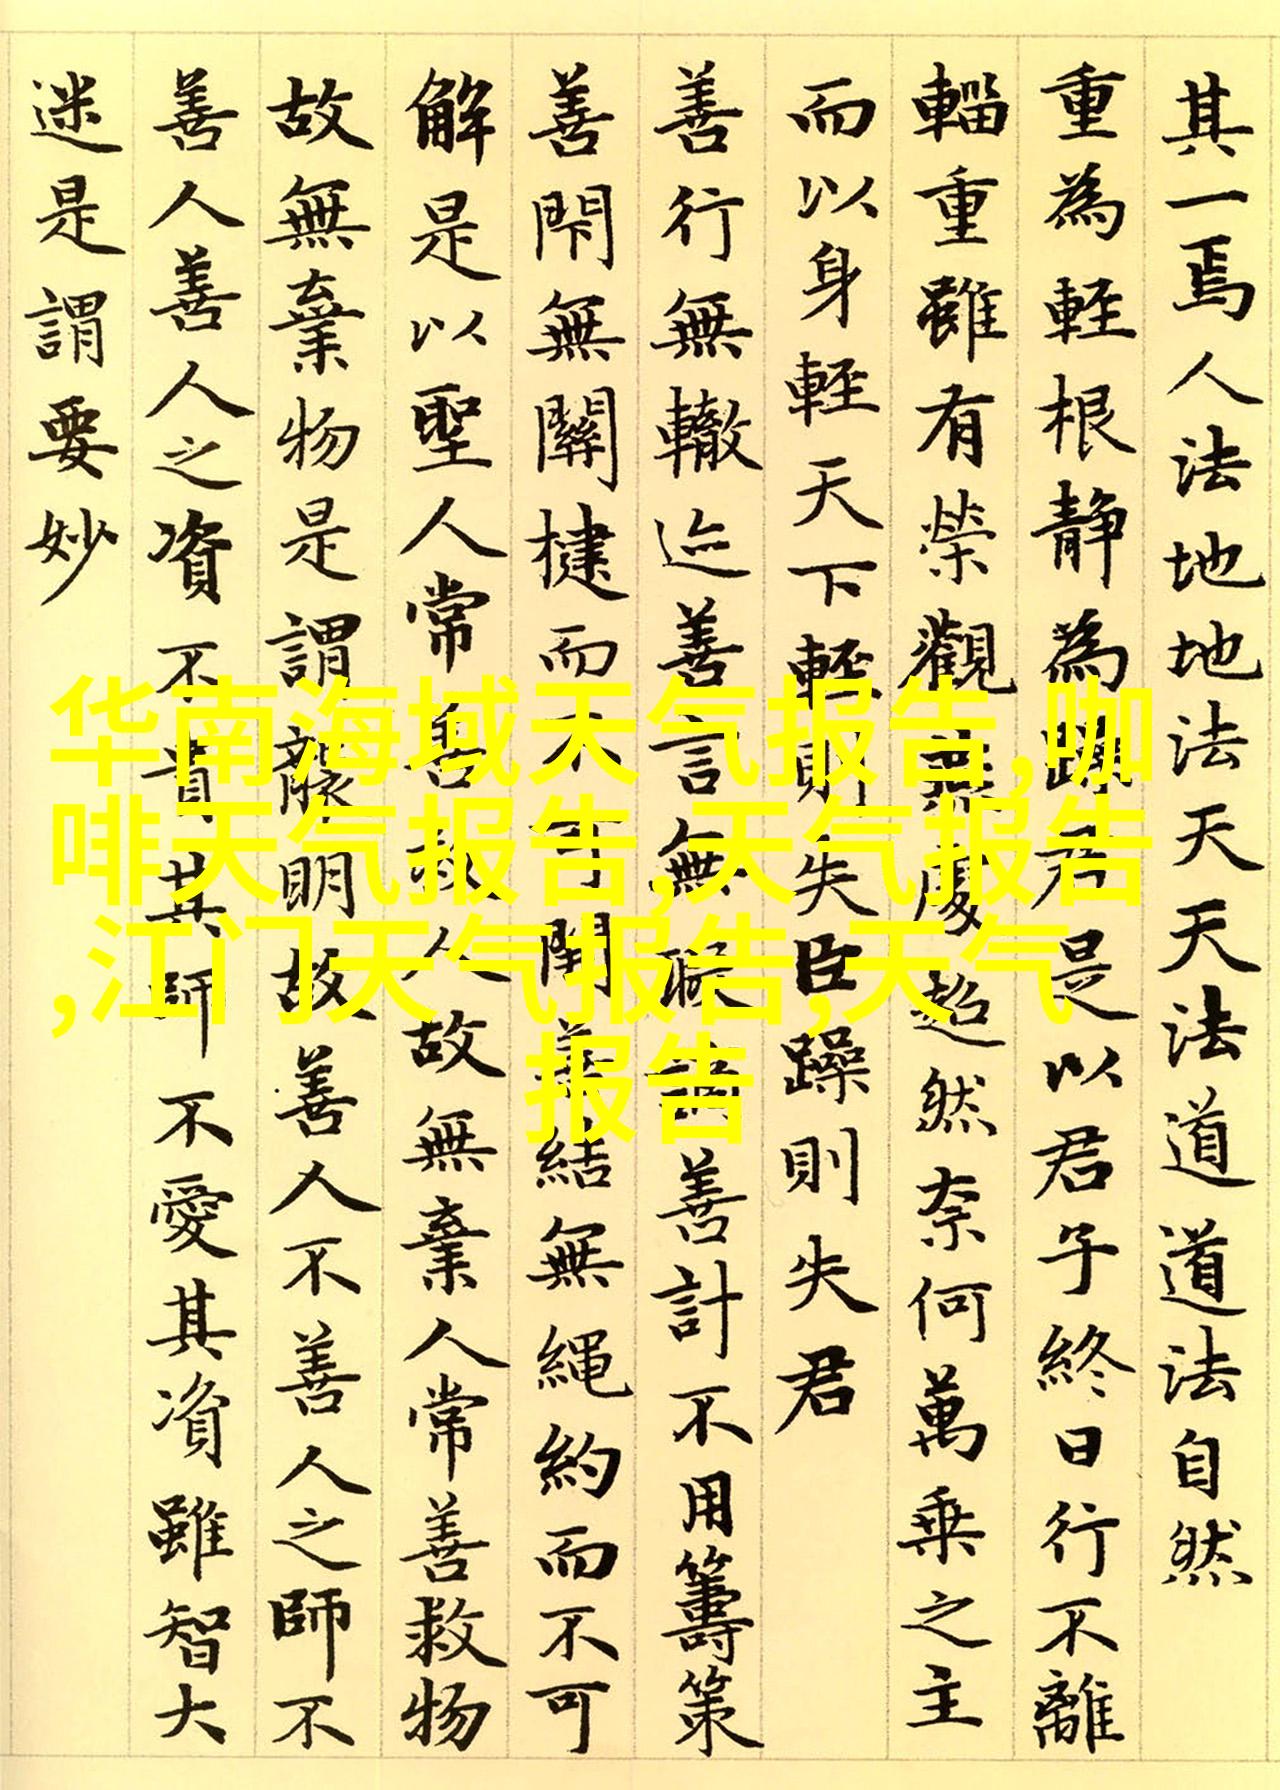 其一焉人法地地法天天法道道法自然
重為輕根靜為躁君是以君子終日行不離
輜重雖有榮觀燕處超然奈何萬乘之主
而以身輕天下輕則失臣躁則失君
善行無轍迹善言無瑕謫善計不用籌策
善閇無關楗而不可開善結無繩約而不可
解是以聖人常善救人故無棄人常善救物
故無棄物是謂襲明故善人不善人之師不
善人善人之資不貴其師不愛其資雖智大
迷是謂要妙
华南海域天气报告,咖
啡天气报告,天气报告
,江门天气报告,天气
报告